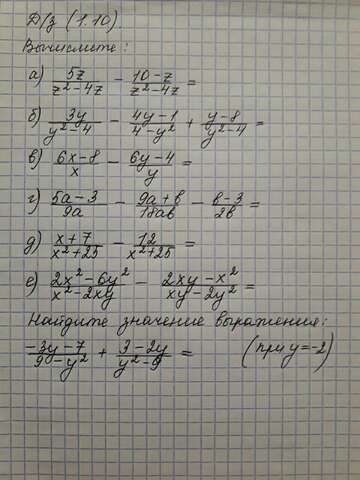 Д/з (1.10).
Вычислите:
а) 5z/(z²-4z) - (10-z)/(z²-4z) =
б) 3y/(y²-4) - (4y-1)/(4-y²) + (y-8)/(y²-4) =
в) (6x-8)/x - (6y-4)/y =
г) (5a-3)/9a - (9a+b)/18ab - (b-3)/2b =
д) (x+7)/(x²+25) - 12/(x²+25) =
е) (2x²-6y²)/(x²-2xy) - (2xy-x²)/(xy-2y²) =
Найдите значение выражения:
(-3y-7)/(9-y²) + (3-2y)/(y²-9) = (при y=-2)